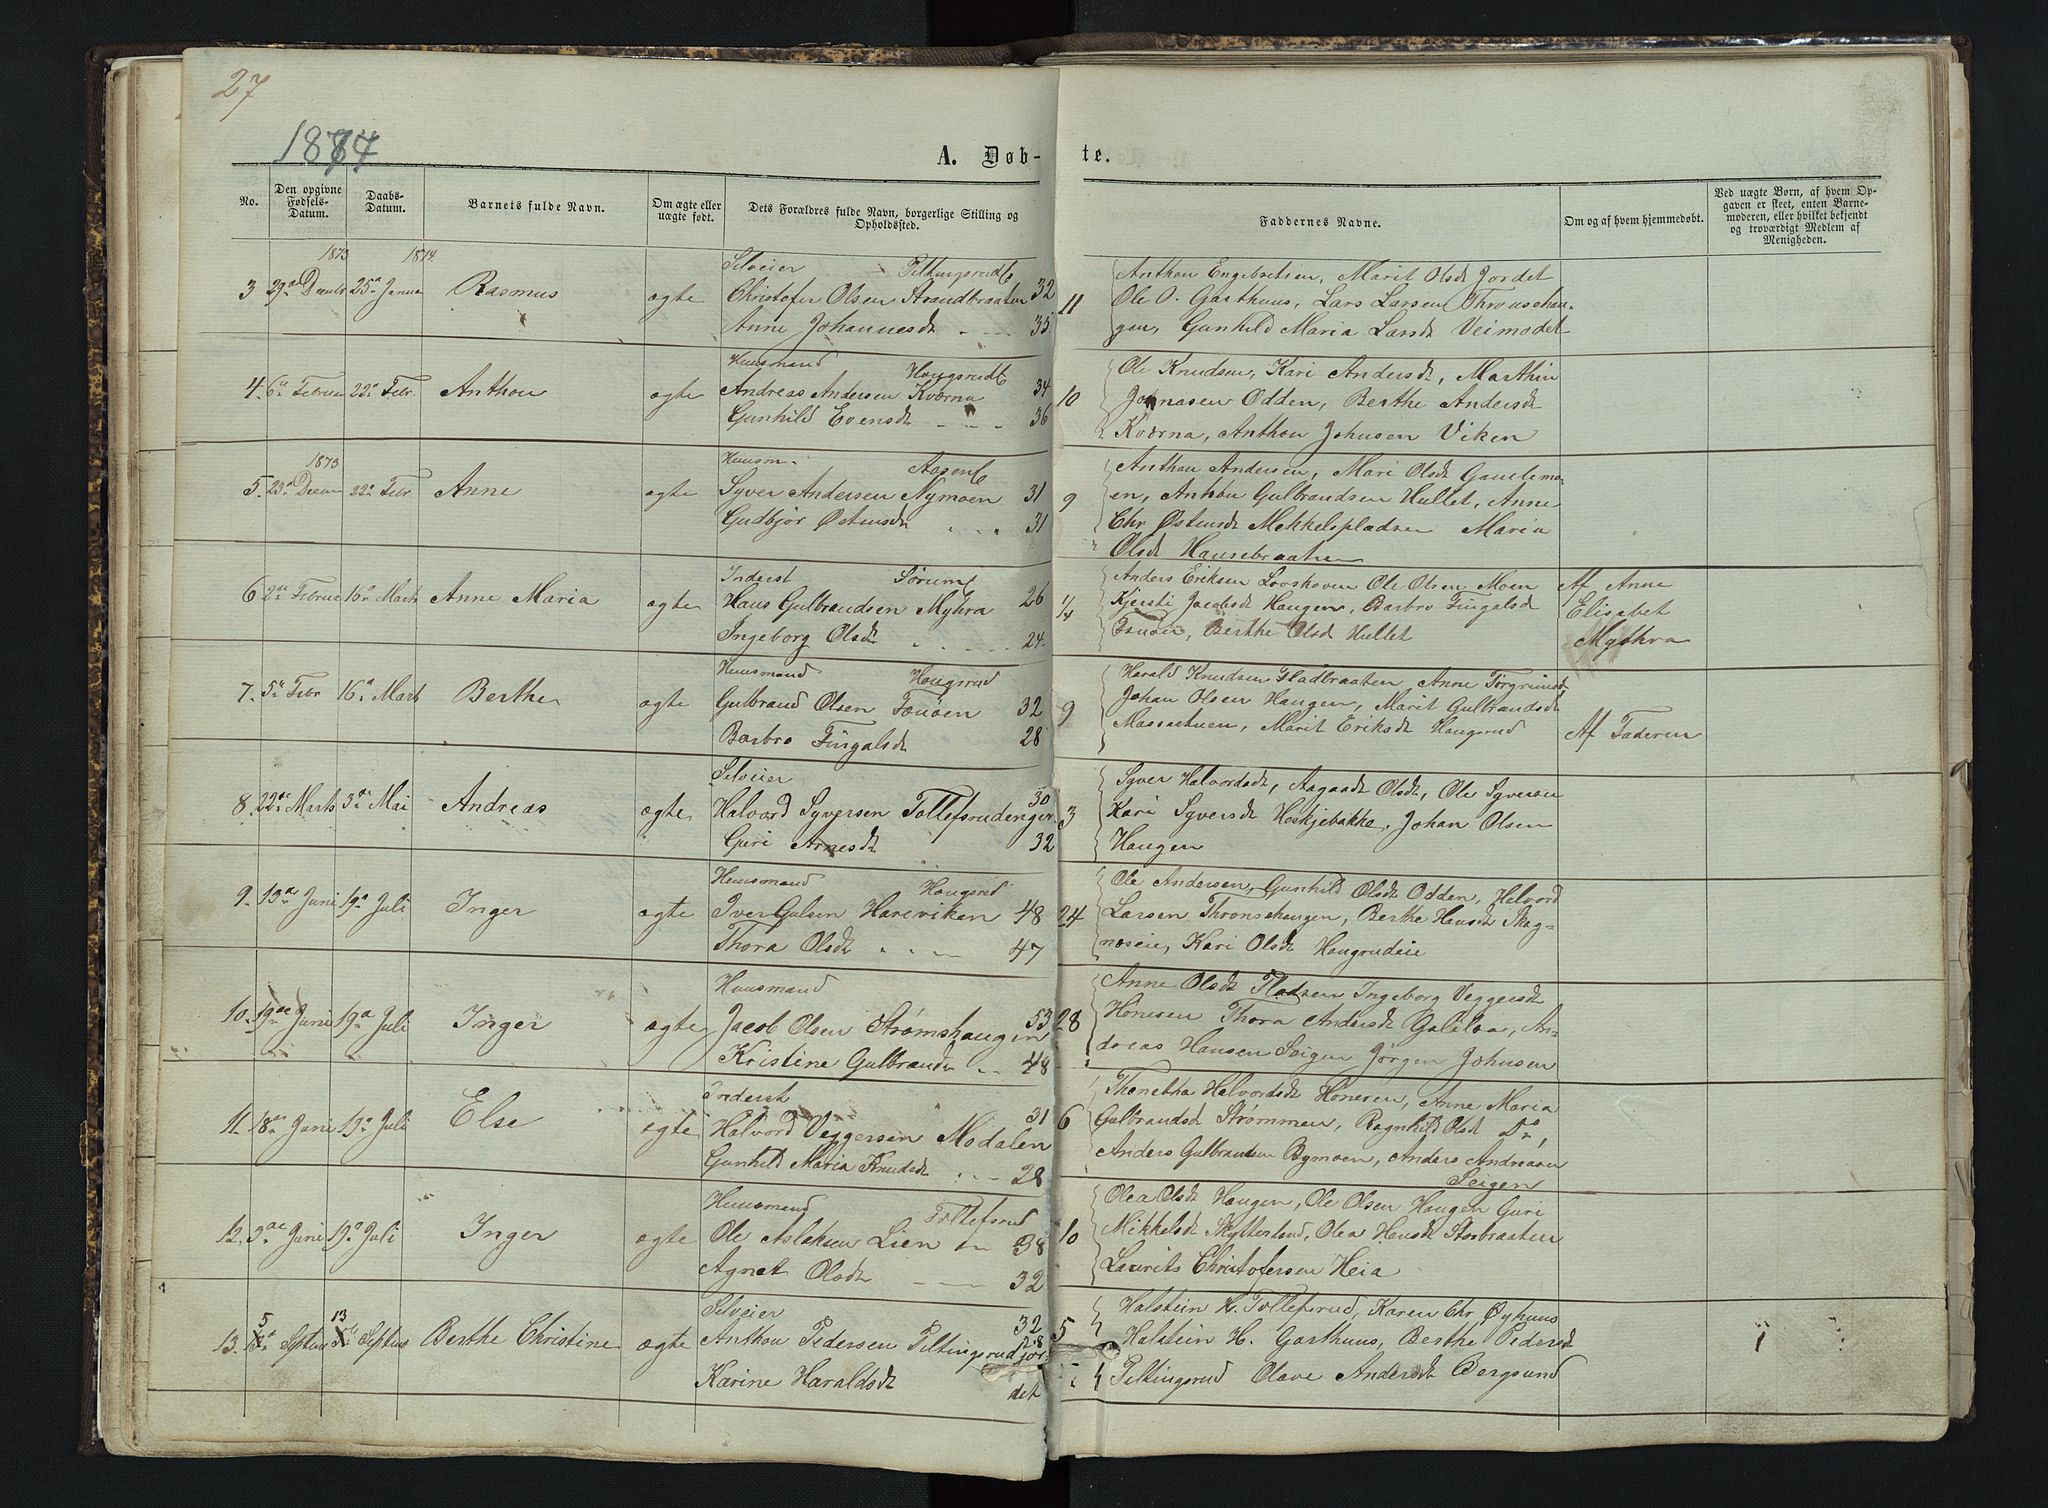 27
1874
A. Døb-
te.
No.
Den opgivne Fødsels-Datum.
Daabs-Datum.
Barnets fulde Navn.
Om ægte eller uægte født.
Dets Forældres fulde Navn, borgerlige Stilling og Opholdssted.
Faddernes Navne.
Om og af hvem hjemmedøbt.
Ved uægte Børn, af hvem Op-
gaven er skeet, enten Barne-
moderen, eller hvilket bekjendt
og troværdigt Medlem af
Menigheden.
1873 1874
Selveier
3 29de 25de Janua Rasmus ægte Christofer Olsen Strandbraaten 32
Anne Johannesdt 35
11 Anthon Engebretsen, Marit Olsdt Jordet
Ole O. Garthuus, Lars Larsen Thronsehau-
gen, Gunhild Maria Larsdt Veimodet
Huusmand
4. 6te Februar 22de Febr Anthon ægte Andreas Andersen Kværna 34
Gunhild Evensdt 36
10 Ole Knudsen, Kari Andersdt, Marthin
Jonasen Odden, Berthe Andersdt
Kværna, Anthon Johnsen Viken
1873
Huusm.
5. 22de Febr Anne ægte Syver Andersen Nymoen 31
Gudbjør Østensdt 31
9 Anthon Andersen, Mari Olsdt Gamlemo-
en, Anthon Gulbrandsen Hullet, Anne
Chr. Østensdt Mekkelspladsen Maria
Olsdt Hansebraaten
Inderst
6 2den Februar 16de Marts Anne Maria ægte Hans Gulbrandsen Myhra 26
Ingeborg Olsdt 24
1/4 Anders Eriksen Ole Olsen Moen
Kjersti Jacobsdt Haugen, Barbro Fingalsdt
Berthe Olsd Hullet
Af Anne
Elisabet
Myhra
Huusmand Hougsrud
7. 5te Febr 16de Marts Berthe ægte Gulbrand Olsen 32
Barbro Fingalsdt 28
9 Harald Knudsen Fladbraaten Anne Torgrimsdt
Johan Olsen Haugen, Marit Gulbrandsdt
Marit Eriksdt Hougsrud
Af Faderen
Selveier
8. 22de Marts 3de Mai Andreas ægte Halvord Syversen Tollefsrudengen 30
Guri Arnesdt 32
3 Syver Halvordsdt, Aagaadt Olsdt, Ole Syversen
Kari Syversdt Heskjebakke, Johan Olsen
Haugen
Huusmand Hougsrud
9. 13de Juni 19de Juli Inger ægte Iver Hareviken 48
Thora Olsdt 47
24 Ole Andersen, Gunhild Olsdt Odden, Halvord
Larsen Thronsehaugen, Berthe Hansdt Skag-
næseie, Kari Olsdt Hougrudeie
Huusmand
10. 19de Juni 19de Juli Inger ægte Jacob Olsen Strømshaugen 53
Kristine Gulbrandsdt 48
28 Anne Olsdt Fladsen Ingeborg Veggersdt
Hønesen Thora Andersdt An-
dreas Hansen Seigen Jørgen Johnsen
Inderst
11. 18de Juni 19de Juli Else ægte Halvord Veggersen Modalen 31
Gunhild Maria Knudsdt 28
6 Halvordsdt Hønesen, Anne Maria
Gulbrandsdt Strømmen, Ragnhild Olsdt Do,
Anders Gulbrandsen Bymoen, Anders Andreasen
Seigen
Huusmand Tollefsrud
12. 3de Juni 19de Juli Inger ægte Ole Aslaksen Lien 38
Agnet Olsdt 32
10 Olea Olsdt Haugen, Ole Olsen Haugen Guri
Mikkelsdt Olea Hansdt Storbraaten
Laurits Christofersen Heia
Selveier
13. 5 Septem 13 Septem Berthe Christine ægte Anthon Pedersen Piltingsrudjor- 32
Karine Haraldsdt det 28
5 Halstein H. Tollefsrud, Karen Chr. Øyhuus
Halstein H. Garthuus, Berthe Pedersdt
Piltingsrud Olave Andersdt Bergsund